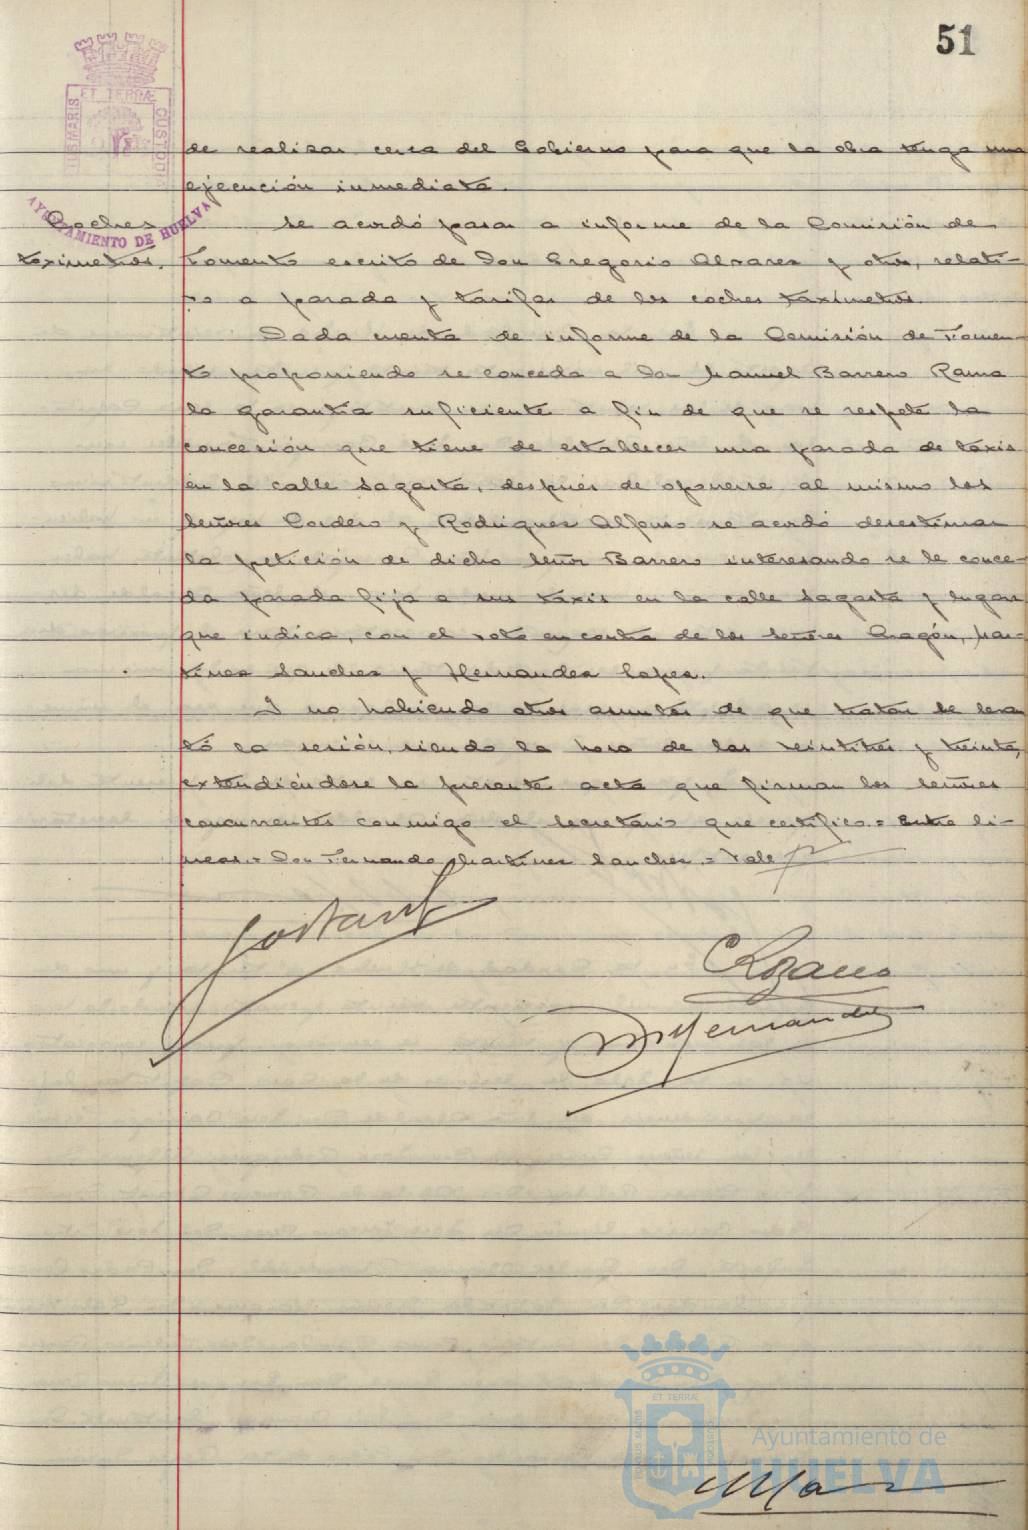 51
ET TERRÆ
CUSTODI
AYUNTAMIENTO DE HUELVA
de realizar cerca del Gobierno para que la obra tenga una
ejecución inmediata.
Coches
taxímetros.
Se acordó pasar a informe de la Comisión de
Fomento escrito de Don Gregorio Alvarez y otros, relati-
vo a parada y tarifas de los coches taxímetros.
Dada cuenta de informe de la Comisión de Fomen-
to proponiendo se conceda a Don Manuel Barrero Rama
la garantía suficiente a fin de que se respete la
concesión que tiene de establecer una parada de taxis
en la calle Sagasta, después de oponerse al mismo los
Señores Cordero y Rodriguez Alfonso se acordó desestimar
la petición de dicho Señor Barrero interesando se le conce-
da parada fija a sus taxis en la calle Sagasta y lugar
que indica, con el voto en contra de los Señores Aragón, Mar-
tinez Sanchez y Hernandez Lopez.
Y no habiendo otros asuntos de que tratar se levan
tó la sesión, siendo la hora de las veintitres y treinta,
extendiéndose la presente acta que firman los Señores
concurrentes conmigo el Secretario que certifico.= Entre lí-
neas.= Don Fernando Martinez Sanchez.= Vale
C Lozano
Hernandez
ET TERRÆ
Ayuntamiento de
HUELVA